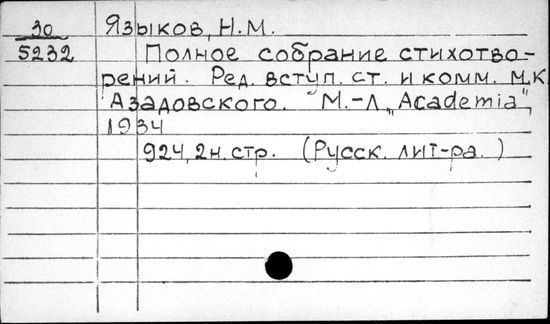 30 Языков, Н.М.
5232 Полное собрание стихотво-
рений. Ред. вступ. ст. и комм. М.К.
Азадовского. М.-Л „Academia",
1934
924, 2н. стр. (Русск. лит-ра.)